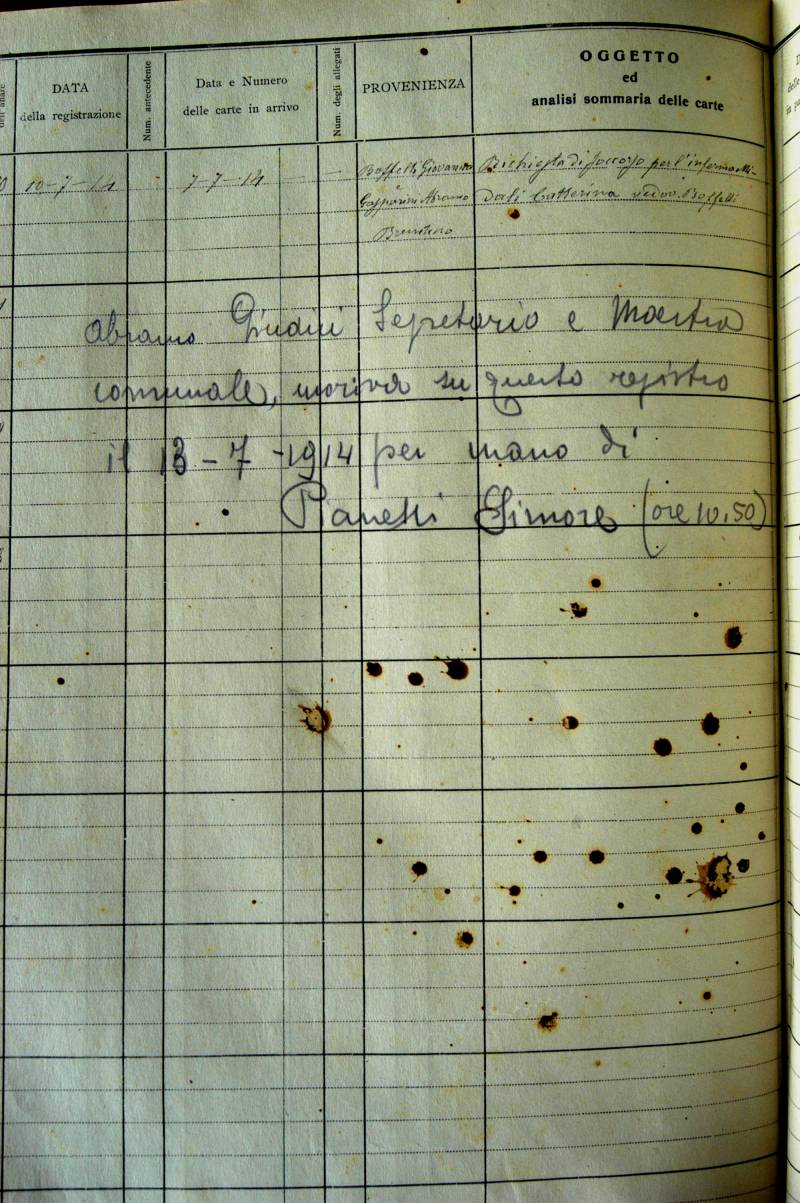 dell'affare
DATA
della registrazione
Num. antecedente
Data e Numero
delle carte in arrivo
Num. degli allegati
PROVENIENZA
OGGETTO
ed
analisi sommaria delle carte
10-7-14
7-7-14
Boffelli Giovanni
e
Gasparini Abramo
Richiesta di soccorso per l'inferma Mi-
doli Catterina vedov. Boffelli
Abramo Giudici Segretario e Maestro
comunale, moriva su questo registro
il 13-7-1914 per mano di
Pianetti Simone (ore 10.50)